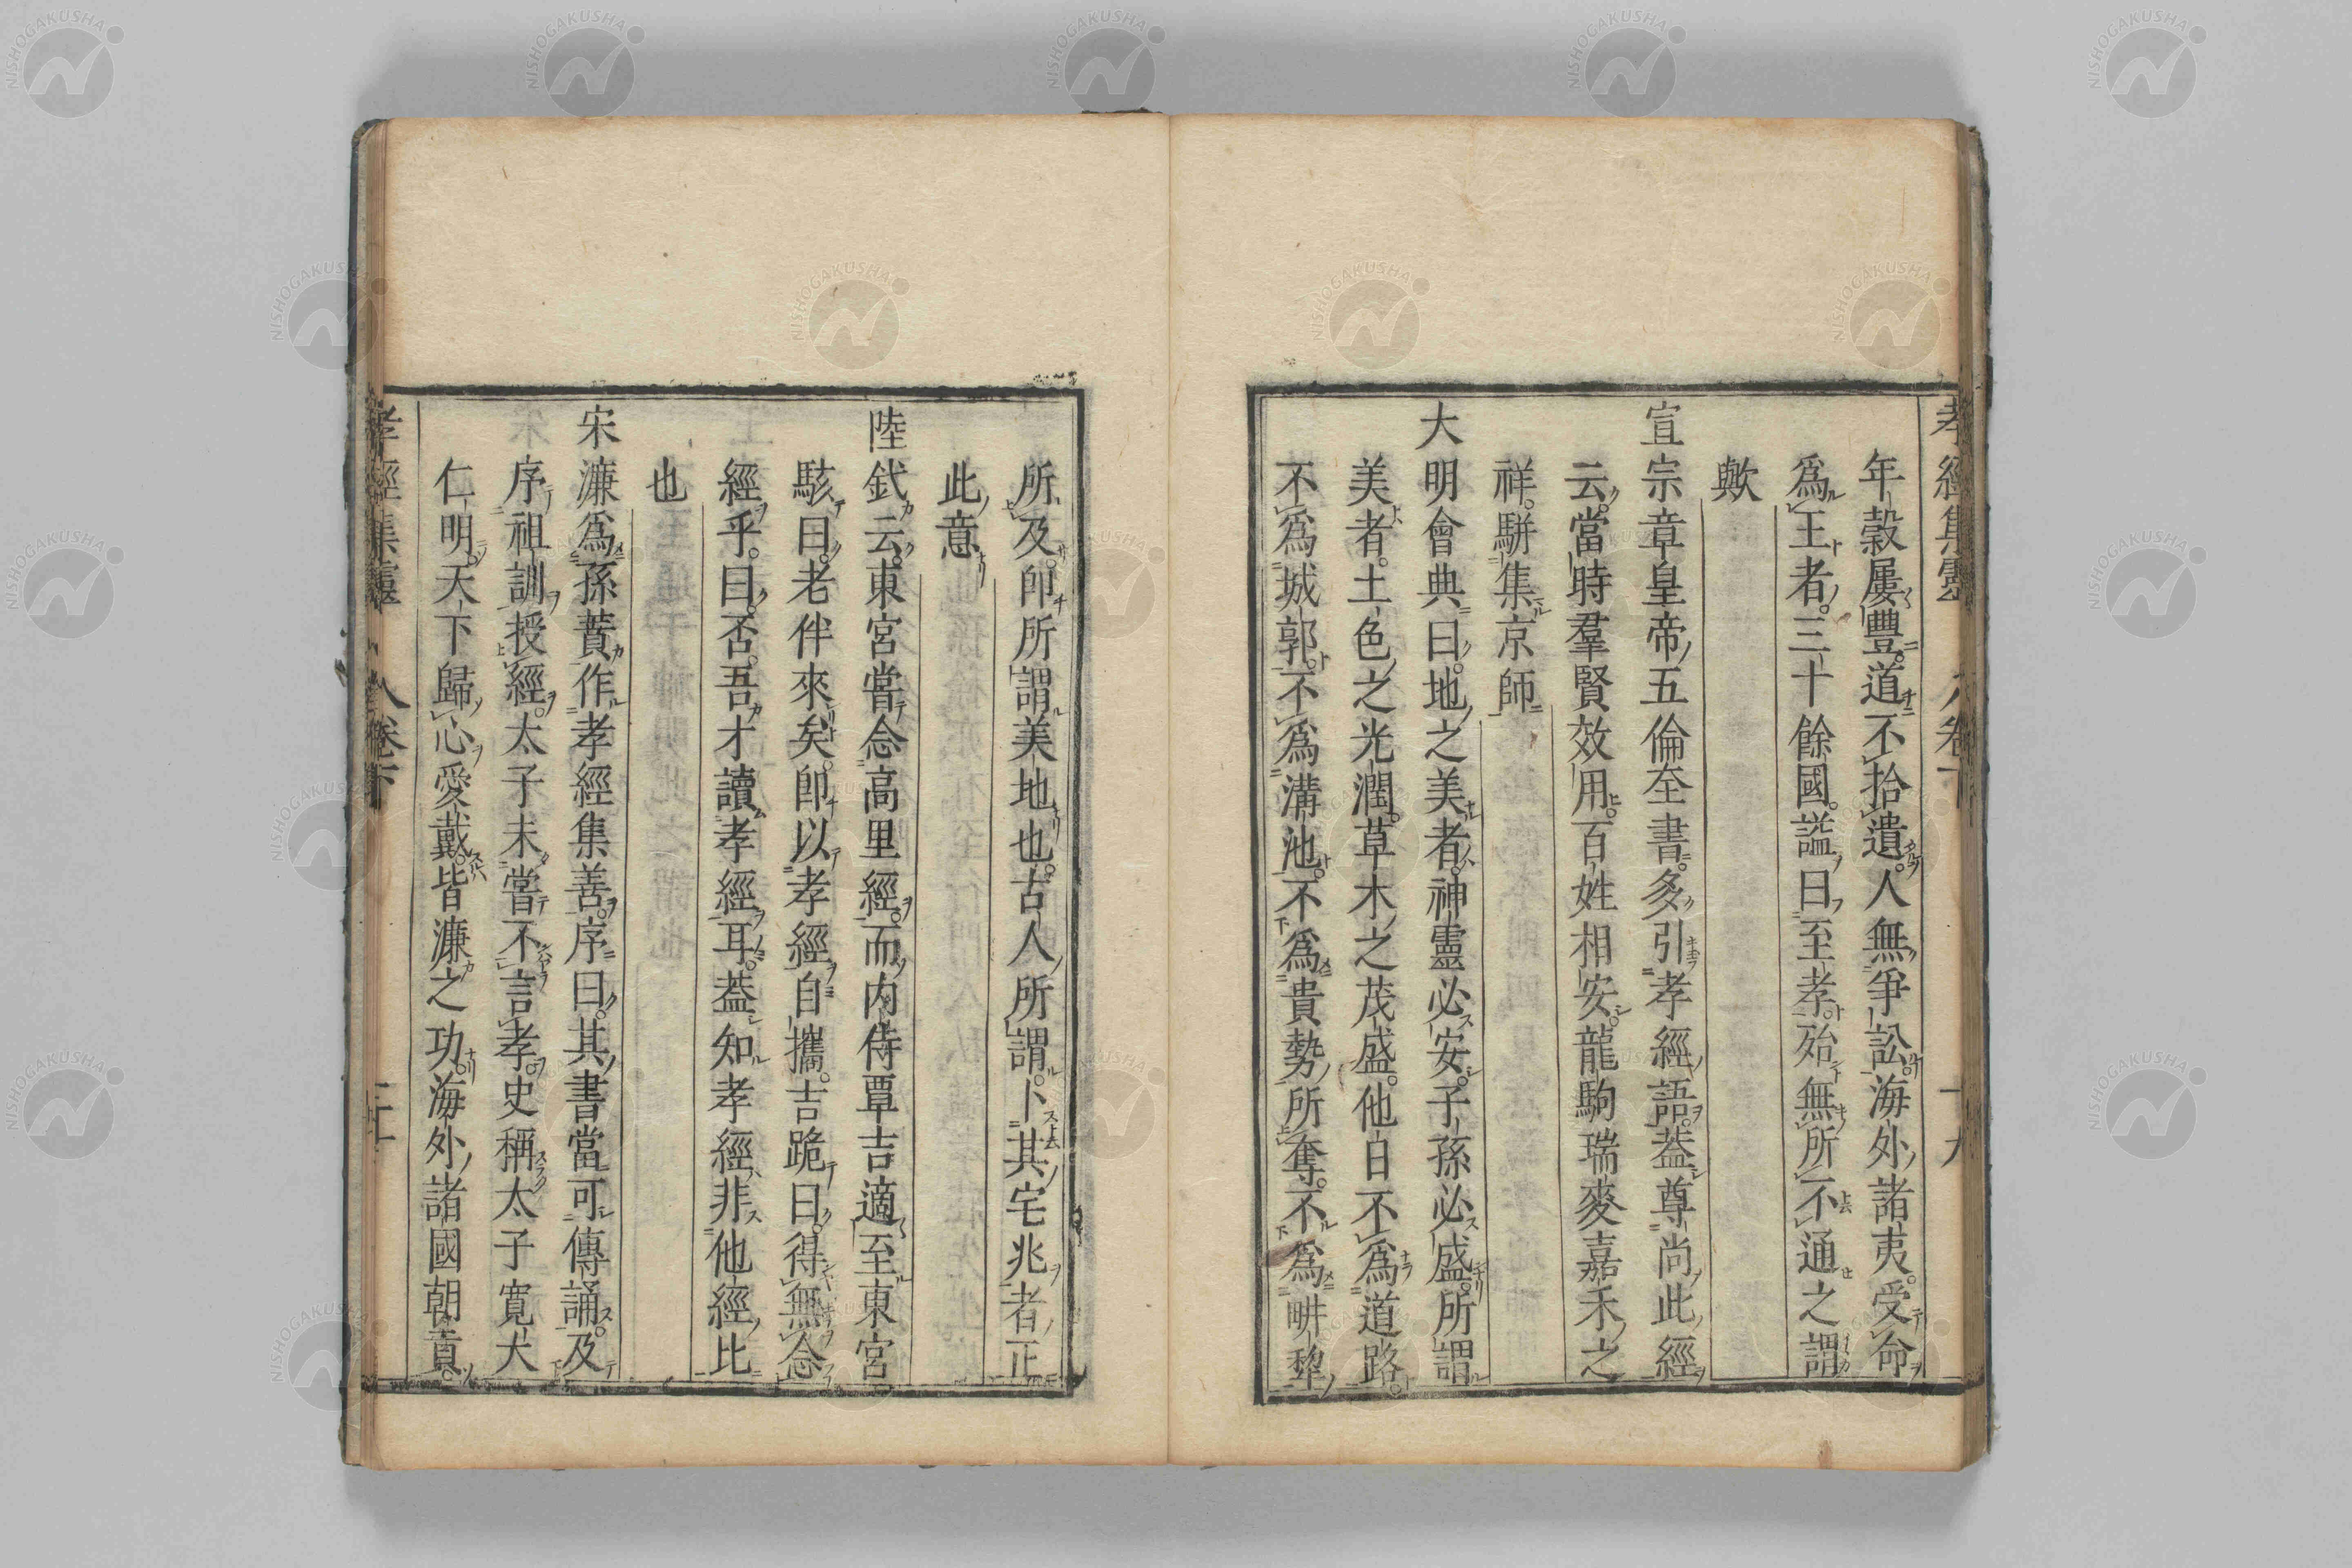 孝經集靈 卷下 十九
年穀屢豐道不拾遺人無爭訟海外諸夷受命
爲王者三十餘國謚曰至孝殆無所不通之謂
歟
宣宗章皇帝五倫全書多引孝經語葢尊尚此經
云當時羣賢效用百姓相安龍駒瑞麥嘉禾之
祥駢集京師
大明會典曰地之美者神靈必安子孫必盛所謂
美者土色之光潤草木之茂盛他日不爲道路
不爲城郭不爲溝池不爲貴勢所奪不爲畊犂
所及卽所謂美地也古人所謂卜其宅兆者正
此意
陸釴云東宮嘗念高里經而内侍覃吉適至東宮
駭曰老伴來矣卽以孝經自攜吉跪曰得無念
經乎曰否吾才讀孝經耳葢知孝經非他經比
也
宋濂爲孫蕡作孝經集善序曰其書當可傳誦及
序祖訓授經太子未嘗不言孝史稱太子寬大
仁明天下歸心愛戴皆濂之功海外諸國朝貢
孝經集靈 卷下
NISHOGAKUSHA